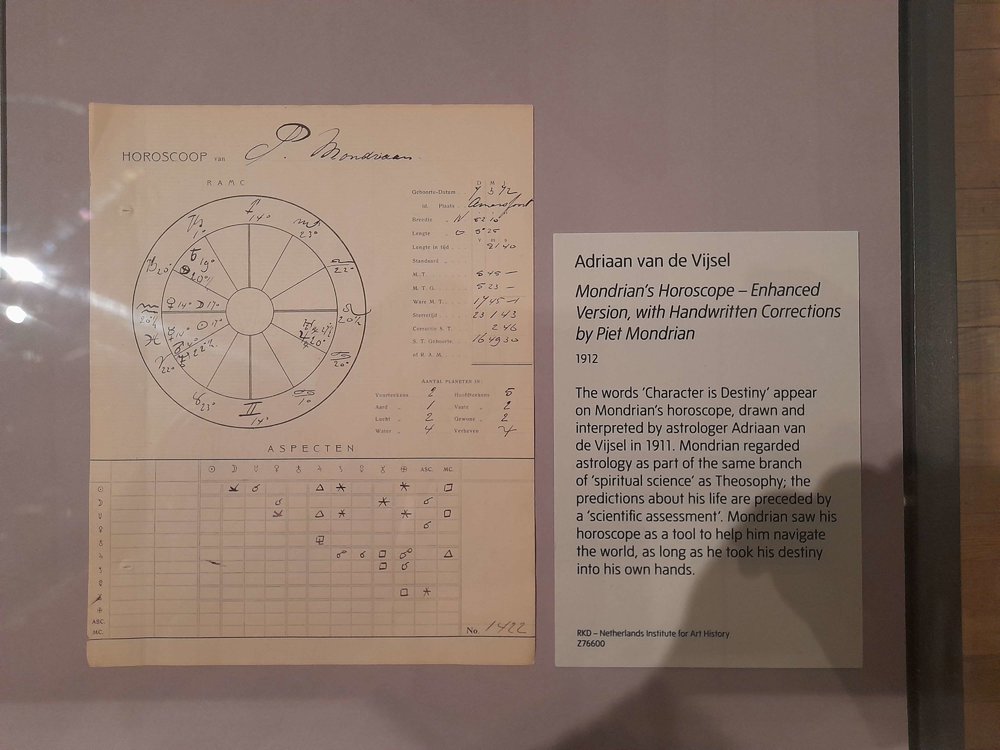 HOROSCOOP van P. Mondriaan
RAMC
D M J
Geboorte-Datum 7 3 72
id. Plaats Amersfoort
Breedte N 52°10'
Lengte O 5°25
Lengte in tijd 21 40
Standaard
M. T. 5 45 –
M. T. G. 5 23 –
Ware M. T. 17 45 –
Sterretijd 23 1 43
Correctie S. T. 2 46
S. T. Geboorte 16 49 30
of R. A. M.
14°
23°
22°
20½
20°
1°
14°
23°
22°
1°
19°
14° 17°
AANTAL PLANETEN IN:
Vuurteekens 2 Hoofdteekens 5
Aard „ 1 Vaste „ 2
Lucht „ 2 Gewone „ 2
Water „ 4 Verheven
ASPECTEN
ASC. MC.
ASC.
MC.
No. 1422
Adriaan van de Vijsel
Mondrian's Horoscope – Enhanced
Version, with Handwritten Corrections
by Piet Mondrian
1912
The words 'Character is Destiny' appear
on Mondrian's horoscope, drawn and
interpreted by astrologer Adriaan van
de Vijsel in 1911. Mondrian regarded
astrology as part of the same branch
of 'spiritual science' as Theosophy; the
predictions about his life are preceded by
a 'scientific assessment'. Mondrian saw his
horoscope as a tool to help him navigate
the world, as long as he took his destiny
into his own hands.
RKD – Netherlands Institute for Art History
Z76600